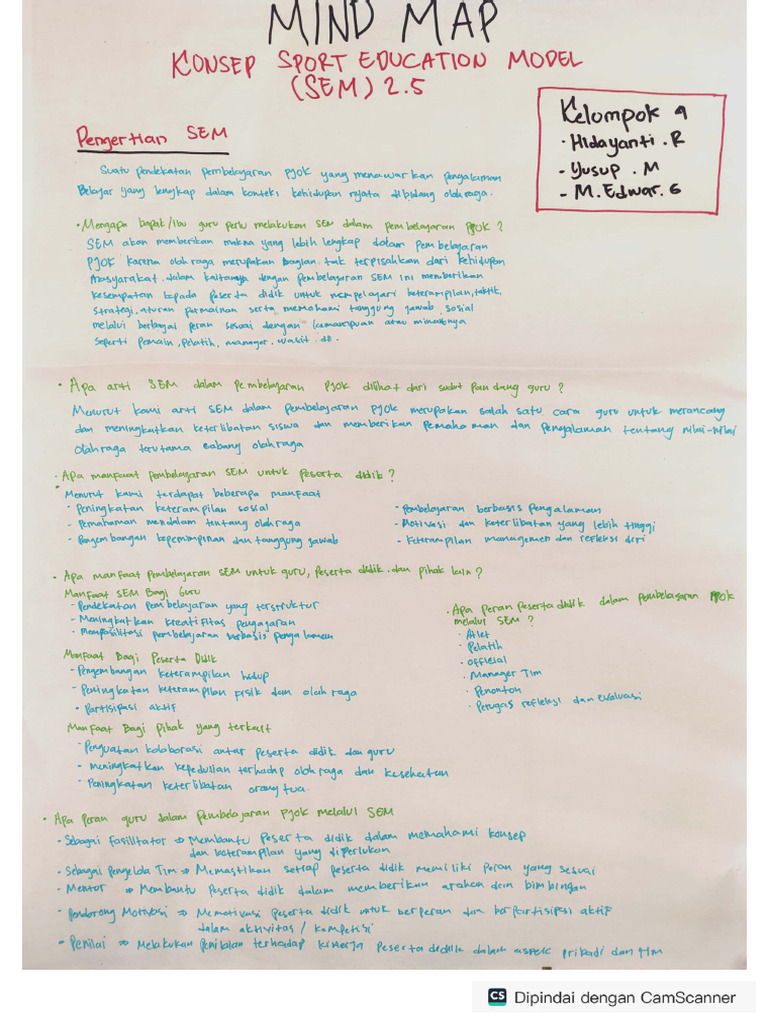 MIND MAP
KONSEP SPORT EDUCATION MODEL
(SEM) 2.5
Kelompok 9
- Hidayanti . R
- Yusup . M
- M. Edwar. G
Pengertian SEM
Suatu pendekatan pembelajaran PJOK yang menawarkan pengalaman
Belajar yang lengkap dalam konteks kehidupan nyata dibidang olahraga.
• Mengapa bapak/ibu guru perlu melakukan SEM dalam pembelajaran PJOK ?
SEM akan memberikan makna yang lebih lengkap dalam Pembelajaran
PJOK karena olahraga merupakan bagian tak terpisahkan dari kehidupan
Masyarakat. dalam kaitannya dengan pembelajaran SEM ini memberikan
kesempatan kepada peserta didik untuk mempelajari keterampilan, taktik,
strategi, aturan permainan serta memahami tanggung jawab sosial
melalui berbagai peran sesuai dengan kemampuan atau minatnya
seperti pemain, pelatih, manager. wasit. dll.
• Apa arti SEM dalam Pembelajaran PJOK dilihat dari sudut pandang guru ?
Menurut kami arti SEM dalam pembelajaran PJOK merupakan salah satu cara guru untuk merancang
dan meningkatkan keterlibatan siswa dan memberikan pemahaman dan pengalaman tentang nilai-nilai
olahraga terutama cabang olahraga
• Apa manfaat pembelajaran SEM untuk peserta didik ?
Menurut kami terdapat beberapa manfaat
- Peningkatan keterampilan sosial
- Pemahaman mendalam tentang olahraga
- Pengembangan kepemimpinan dan tanggung jawab
- Pembelajaran berbasis pengalaman
- Motivasi dan keterlibatan yang lebih tinggi
- Keterampilan managemen dan refleksi diri
• Apa manfaat Pembelajaran SEM untuk guru, peserta didik. dan pihak lain ?
Manfaat SEM Bagi Guru
- Pendekatan pembelajaran yang terstruktur
- Meningkatkan kreatifitas pengajaran
- Memfasilitasi pembelajaran berbasis pengalaman
Manfaat Bagi Peserta Didik
- Pengembangan keterampilan hidup
- Peningkatan keterampilan fisik dan olahraga
• Partisipasi aktif
Manfaat Bagi Pihak yang terkait
- Penguatan kolaborasi antar peserta didik dan guru
- Meningkatkan kepedulian terhadap olahraga dan kesehatan
- Peningkatan keterlibatan orang tua.
• Apa Peran peserta didik dalam pembelajaran PJOK
melalui SEM ?
• Atlet
• Pelatih
• official
• Manager Tim
• Penonton
• Petugas refleksi dan evaluasi
• Apa peran guru dalam Pembelajaran PJOK melalui SEM
- Sebagai Fasilitator => Membantu peserta didik dalam memahami konsep
dan keterampilan yang diperlukan
- Sebagai Pengelola Tim => Memastikan setiap peserta didik memiliki peran yang sesuai
- Mentor => Membantu peserta didik dalam memberikan arahan dan bimbingan
- Pendorong Motivasi => Memotivasi peserta didik untuk berperan dan berpartisipasi aktif
dalam aktivitas / kompetisi
- Penilai => Melakukan penilaian terhadap kinerja peserta didik dalam aspek pribadi dan tim
CS Dipindai dengan CamScanner